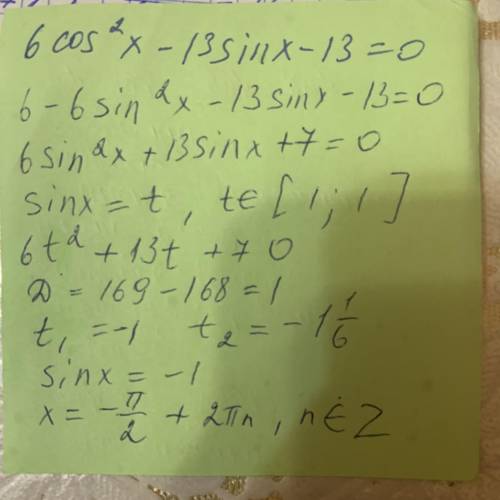 6 cos²x - 13 sinx - 13 = 0
6 - 6 sin²x - 13 sinx - 13 = 0
6 sin²x + 13 sinx + 7 = 0
sinx = t , t∈ [ 1 ; 1 ]
6t² + 13t + 7 0
D = 169 - 168 = 1
t₁ = -1 t₂ = -1 1/6
sinx = -1
x = -π/2 + 2πn , n∈Z